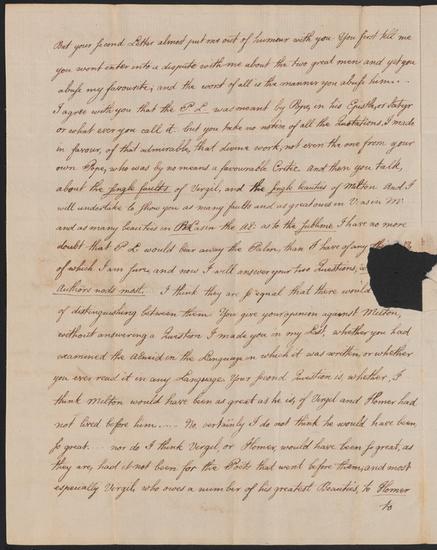 But your second Letter almost put me out of humour with you. You first tell me
you wont enter into a dispute with me about the two great men and yet you
abuse my favourite, and the worst of all is the manner you abuse him....
I agree with you that the P L. was meant by Pope, in his Epistle, or Satyr
or what ever you call it. but you take no notice of all the Quotations, I made
in favour, of that admirable, that divine work, not even the one from your
own Pope, who was by no means a favourable Critic. And then you talk,
about the single faults of Vergil, and the single beauties of Milton And I
will undertake to show you as many faults and as great ones in V. as in M.
and as many beauties in P L as in the Æ: as to the sublime I have no more
doubt that P L would bear away the Palm, than I have of any
of which I am sure, and now I will answer your two Questions,
Authors nods most. I think they are so equal that there would
of distinguishing between them. You give your opinion against Milton,
without answering a Question I made you in my Let, whether you had
examined the Aneid in the Language in which it was written, or whether
you ever read it in any Language. Your second Question is, whether, I
think Milton would have been as great as he is, if Vergil and Homer had
not lived before him.... No, certainly I do not think he would have been
so great.... nor do I think Vergil, or Homer, would have been so great, as
they are, had it not been for the Poets that went before them, and most
especially Vergil, who owes a number of his greatest Beauties, to Homer
to